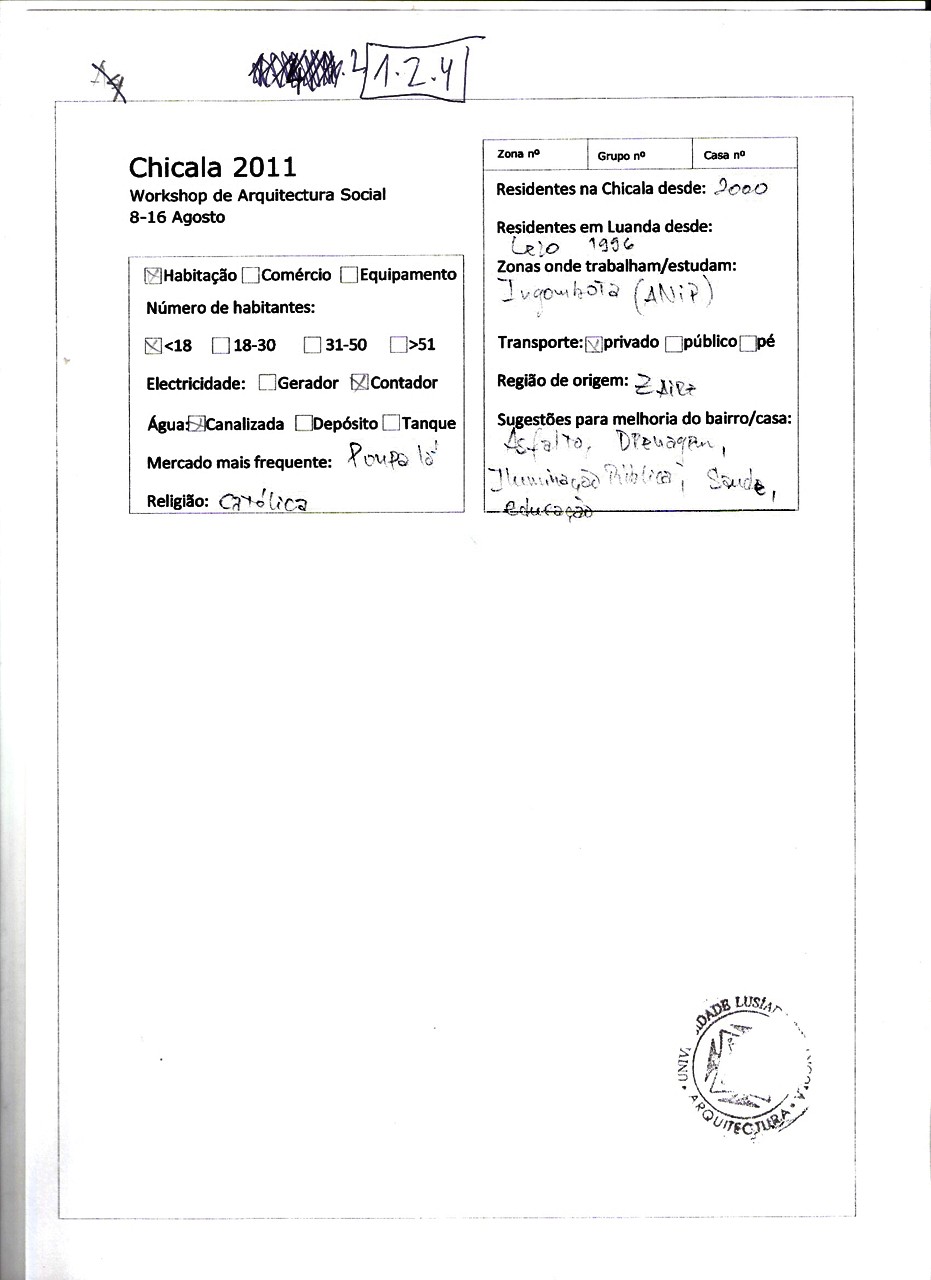 1.2.4
Chicala 2011
Workshop de Arquitectura Social
8-16 Agosto
☒Habitação ☐Comércio ☐Equipamento
Número de habitantes:
☒<18 ☐18-30 ☐31-50 ☐>51
Electricidade: ☐Gerador ☒Contador
Água:☒Canalizada ☐Depósito ☐Tanque
Mercado mais frequente: Poupa lá
Religião: Católica
Zona nº Grupo nº Casa nº
Residentes na Chicala desde: 2000
Residentes em Luanda desde:
1996
Zonas onde trabalham/estudam:
Ingombota (ANIP)
Transporte:☒privado ☐público☐pé
Região de origem: ZAIRE
Sugestões para melhoria do bairro/casa:
Asfalto, Drenagem,
Iluminação Pública, Saude,
educação
ARQUITECTURA